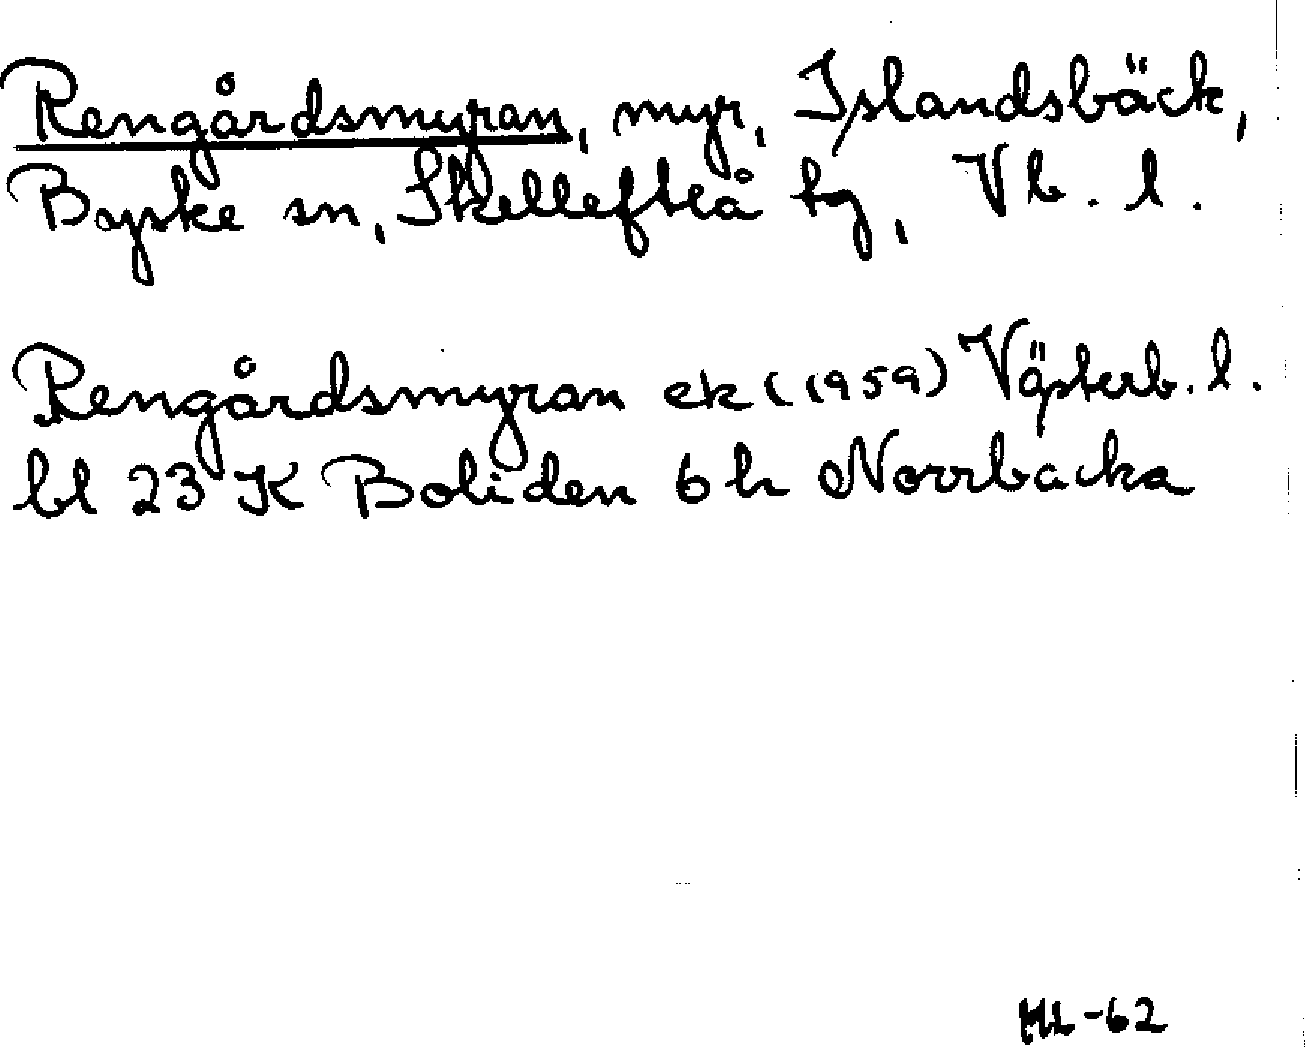 Rengårdsmyran, myr, Islandsbäck,
Byske sn, Skellefteå tg, Vb. l.
Rengårdsmyran ek (1959) Västerb. l.
bl 23 K Boliden 6 h Norrbacka
HL-62